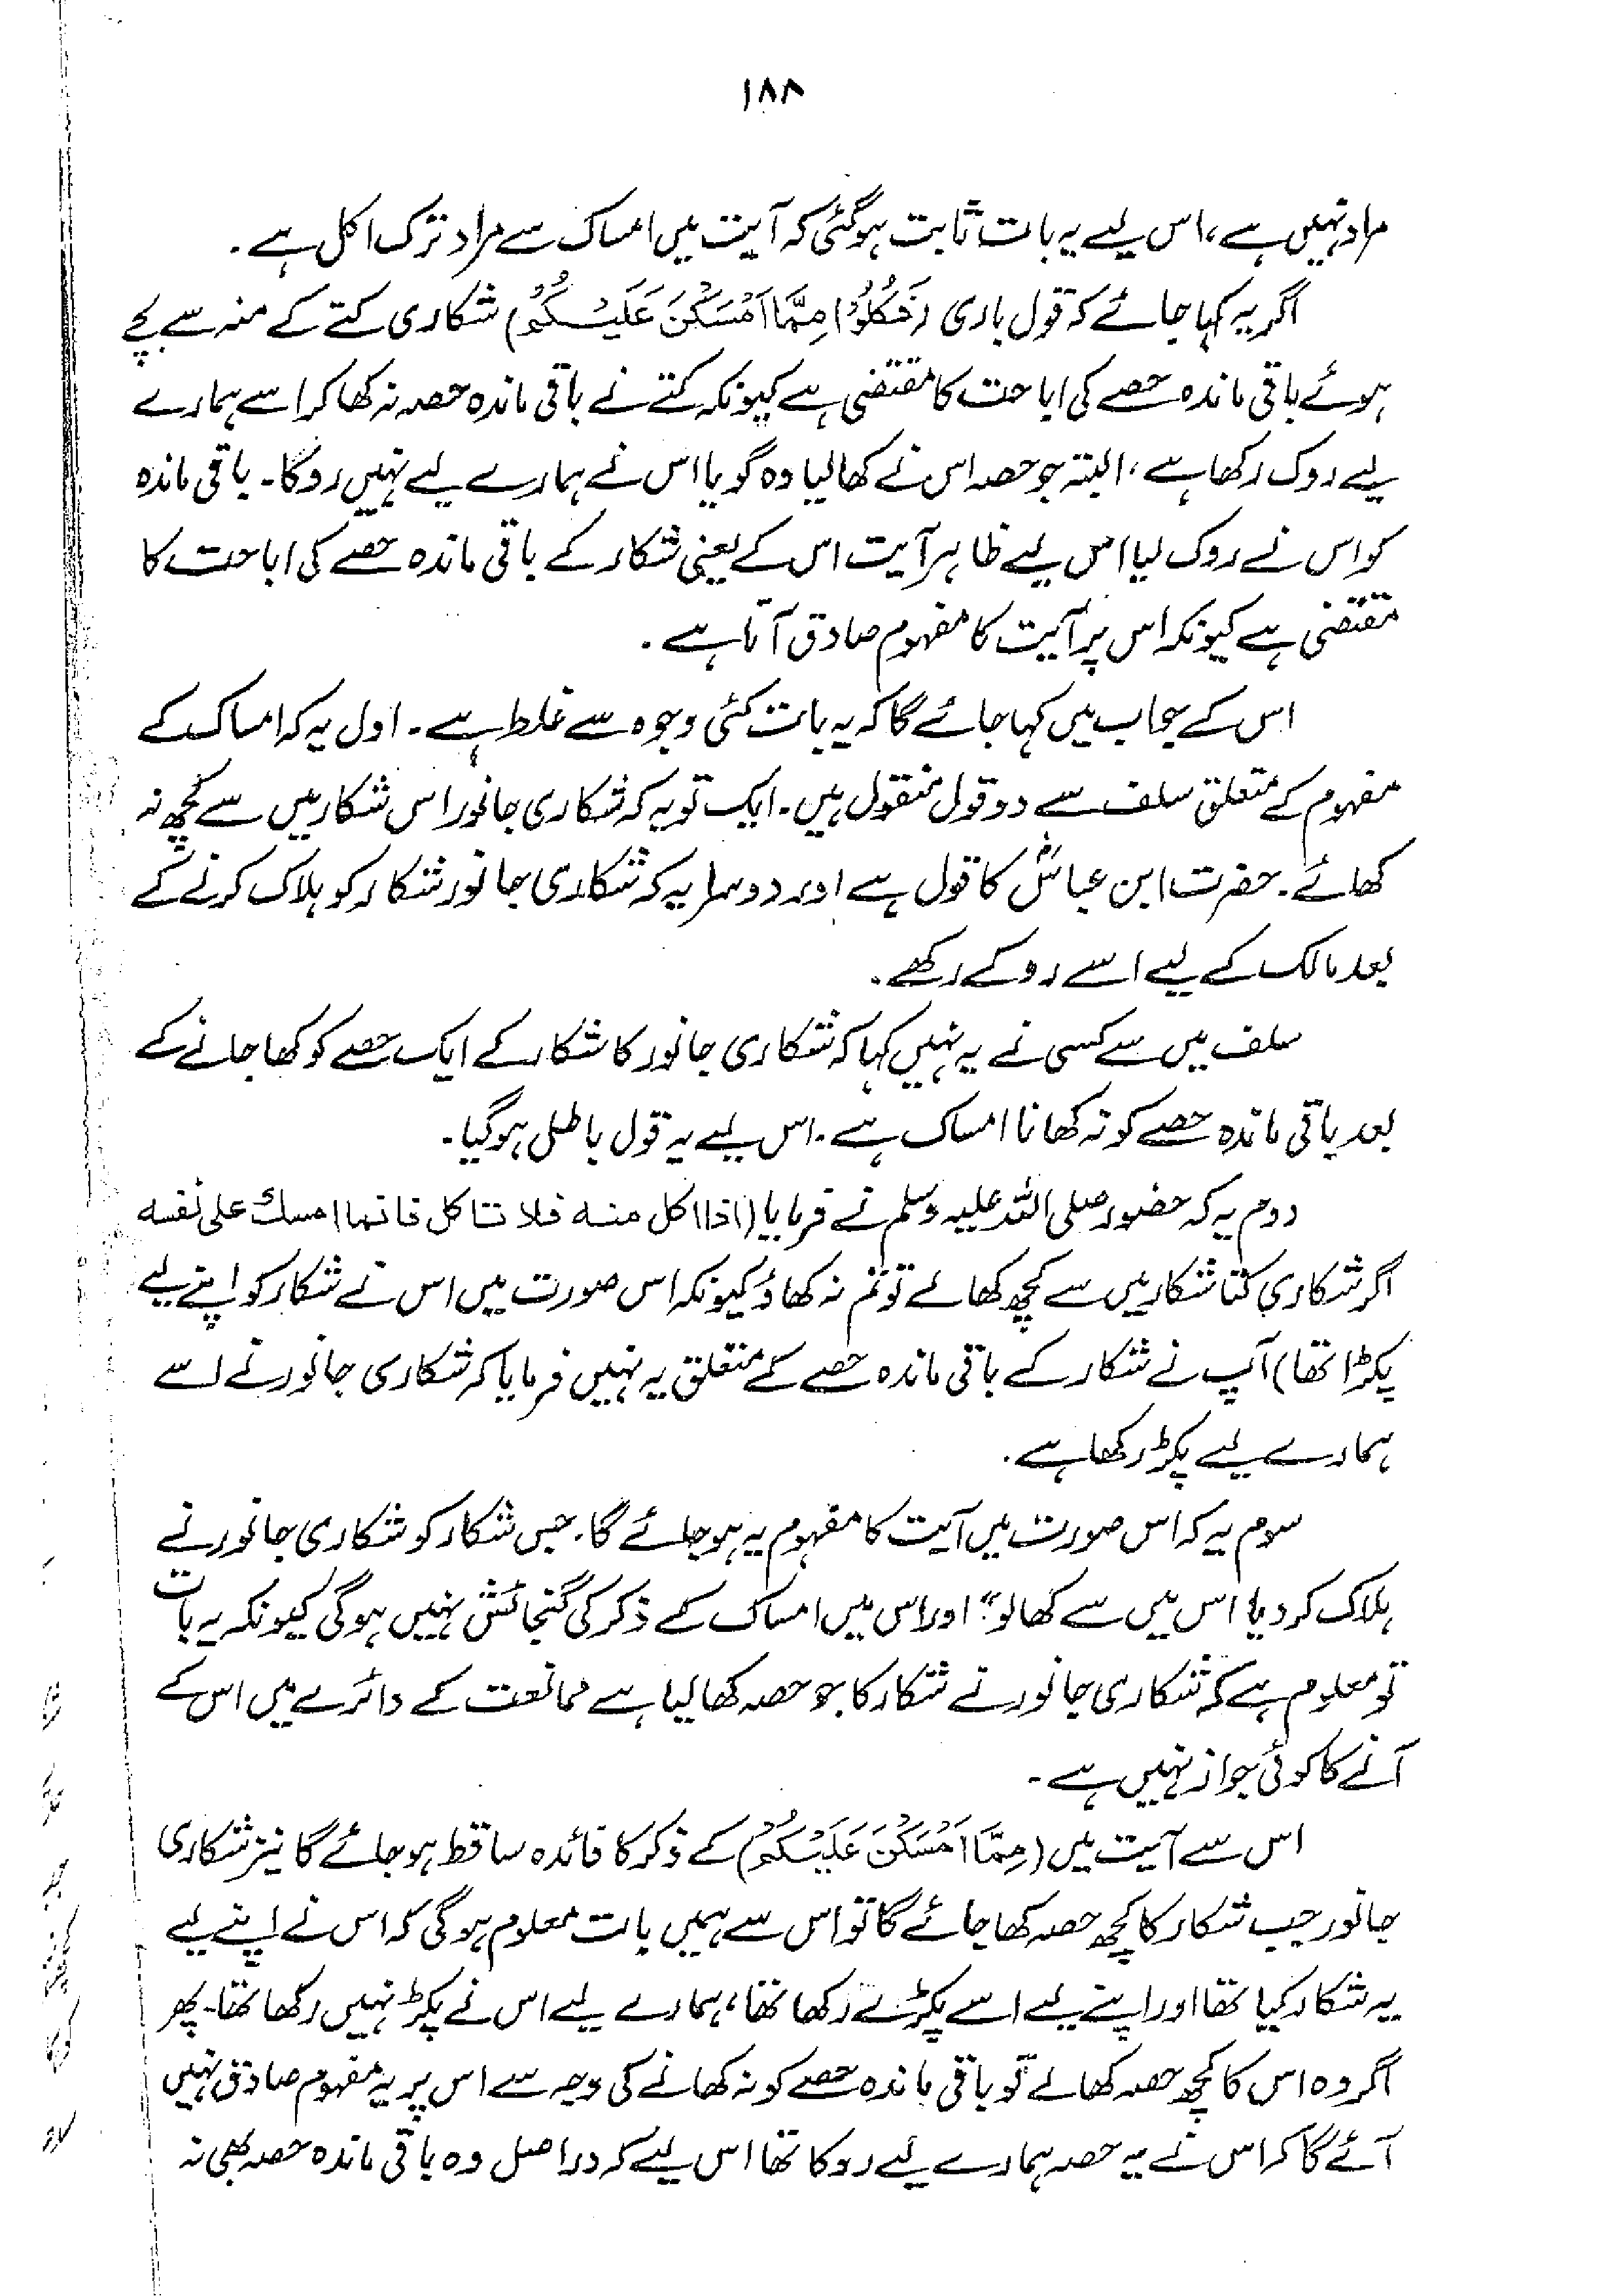 ۱۸۸
مراد نہیں ہے، اس لیے یہ بات ثابت ہوگئی کہ آیت میں امساک سے مراد ترک اکل ہے۔
اگر یہ کہا جائے کہ قول باری (فَكُلُوْا مِمَّا اَمْسَكْنَ عَلَيْكُمْ) شکاری کتے کے منہ سے بچے
ہوئے باقی ماندہ حصے کی اباحت کا مقتضی ہے کیونکہ کتے نے باقی ماندہ حصہ نہ کھا کر اسے ہمارے
لیے روک رکھا ہے، البتہ جو حصہ اس نے کھا لیا وہ گویا اس نے ہمارے لیے نہیں روکا۔ باقی ماندہ
کو اس نے روک لیا اس لیے ظاہر آیت اس کے یعنی شکار کے باقی ماندہ حصے کی اباحت کا
مقتضی ہے کیونکہ اس پر آیت کا مفہوم صادق آتا ہے۔
اس کے جواب میں کہا جائے گا کہ یہ بات کئی وجوہ سے غلط ہے۔ اول یہ کہ امساک کے
مفہوم کے متعلق سلف سے دو قول منقول ہیں۔ ایک تو یہ کہ شکاری جانور اس شکار میں سے کچھ نہ
کھائے۔ حضرت ابن عباسؓ کا قول ہے اور دوسرا یہ کہ شکاری جانور شکار کو ہلاک کرنے کے
بعد مالک کے لیے اسے روکے رکھے۔
سلف میں سے کسی نے یہ نہیں کہا کہ شکاری جانور کا شکار کے ایک حصے کو کھا جانے کے
بعد باقی ماندہ حصے کو نہ کھانا امساک ہے۔ اس لیے یہ قول باطل ہوگیا۔
دوم یہ کہ حضور صلی اللہ علیہ وسلم نے فرمایا (اذا اکل منه فلا تاکل فانما امسك علی نفسه
اگر شکاری کتا شکار میں سے کچھ کھالے تو تم نہ کھاؤ کیونکہ اس صورت میں اس نے شکار کو اپنے لیے
پکڑا تھا) آپ نے شکار کے باقی ماندہ حصے کے متعلق یہ نہیں فرمایا کہ شکاری جانور نے اسے
ہمارے لیے پکڑ رکھا ہے۔
سوم یہ کہ اس صورت میں آیت کا مفہوم یہ ہو جائے گا۔ جس شکار کو شکاری جانور نے
ہلاک کر دیا اس میں سے کھا لو" اور اس میں امساک کے ذکر کی گنجائش نہیں ہوگی کیونکہ یہ بات
تو معلوم ہے کہ شکاری جانور نے شکار کا جو حصہ کھا لیا ہے ممانعت کے دائرے میں اس کے
آنے کا کوئی جواز نہیں ہے۔
اس سے آیت میں (مِمَّا اَمْسَكْنَ عَلَيْكُمْ) کے ذکر کا فائدہ ساقط ہو جائے گا نیز شکاری
جانور جب شکار کا کچھ حصہ کھا جائے گا تو اس سے ہمیں بات معلوم ہوگی کہ اس نے اپنے لیے
یہ شکار کیا تھا اور اپنے لیے اسے پکڑے رکھا تھا، ہمارے لیے اس نے پکڑ نہیں رکھا تھا۔ پھر
اگر وہ اس کا کچھ حصہ کھالے تو باقی ماندہ حصے کو نہ کھانے کی وجہ سے اس پر یہ مفہوم صادق نہیں
آئے گا کہ اس نے یہ حصہ ہمارے لیے روکا تھا اس لیے کہ دراصل وہ باقی ماندہ حصہ بھی نہ